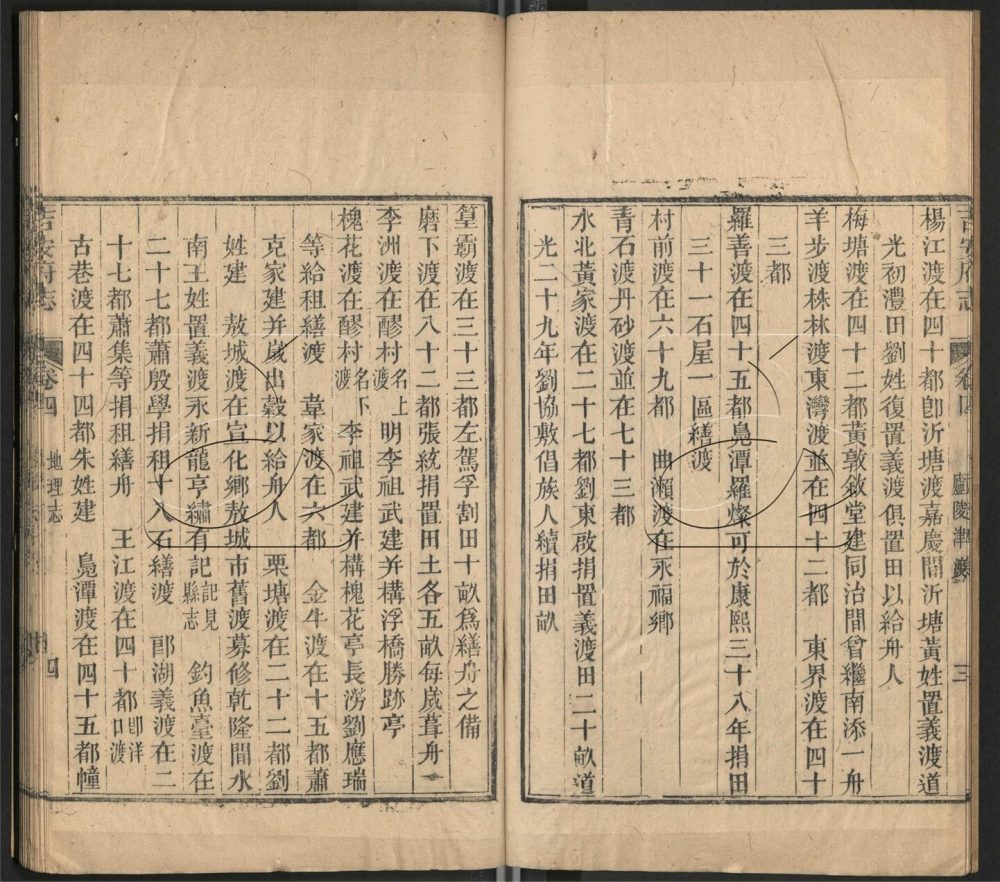 吉安府志
卷四
廬陵津渡
三
楊江渡在四十都卽沂塘渡嘉慶間沂塘黃姓置義渡道
光初澧田劉姓復置義渡俱置田以給舟人
梅塘渡在四十二都黃敦敘堂建同治間曾繼南添一舟
羊步渡株林渡東灣渡並在四十二都 東界渡在四十
三都
羅善渡在四十五都鳧潭羅燦可於康熙三十八年捐田
三十一石屋一區繕渡
村前渡在六十九都 曲瀨渡在永福鄉
青石渡丹砂渡並在七十三都
水北黃家渡在二十七都劉東啟捐置義渡田二十畝道
光二十九年劉協敷倡族人續捐田畝
篁霸渡在三十三都左駕孚割田十畝爲繕舟之備
磨下渡在八十二都張統捐置田土各五畝每歲葺舟
李洲渡在醪村名上渡明李祖武建并構浮橋勝跡亭
槐花渡在醪村名下渡 李祖武建并構槐花亭長澇劉應瑞
等給租繕渡 韋家渡在六都 金牛渡在十五都蕭
克家建并歲出穀以給舟人 栗塘渡在二十二都劉
姓建 敖城渡在宣化鄉敖城市舊渡募修乾隆間水
南王姓置義渡永新龍亨繡有記記見縣志 釣魚臺渡在
二十七都蕭殷學捐租十八石繕渡 郎湖義渡在二
十七都蕭集等捐租繕舟 王江渡在四十都卽洋口渡
古巷渡在四十四都朱姓建 鳧潭渡在四十五都幢
吉安府志
卷四
地理志
四